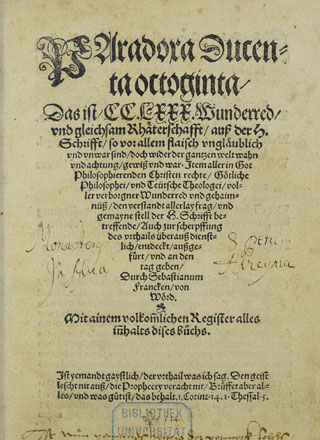 PAradoxa Ducen-
ta octoginta/
Das ist/ CC.LXXX. Wunderred/
vnd gleichsam Rhäterschafft/ auß der H.
Schrifft/ so vor allem flaisch vngläublich
vnd vnwar sind/ doch wider der gantzen welt wahn
vnd achtung/ gewiß vnd war. Item aller in Got
Philosophierenden Christen rechte/ Götliche
Philosophei/ vnd Teütsche Theologei/ vol-
ler verborgner Wunderred vnd gehaim-
nüß/ den verstandt allerlay frag/ vnd
gemayne stell der H. Schrifft be-
treffende/ Auch zur scherpffung
des vrthails überauß dienst-
lich/ entdeckt/ außge-
fürt/ vnd an den
tag geben/
Durch Sebastianum
Francken/ von
Wörd.
Mit ainem volkom̃lichen Register alles
in̄halts dises bůchs.
Ist yemandt gaystlich/ der vrthail was ich sag. Den geist
lescht nit auß/ die Prophecey veracht nit/ Brüffet aber al-
les/ vnd was gůt ist/ das behalt. 1. Corint. 14. 1. Thessal. 5.
BIBLIOTHEK
UNIVERSITÄT